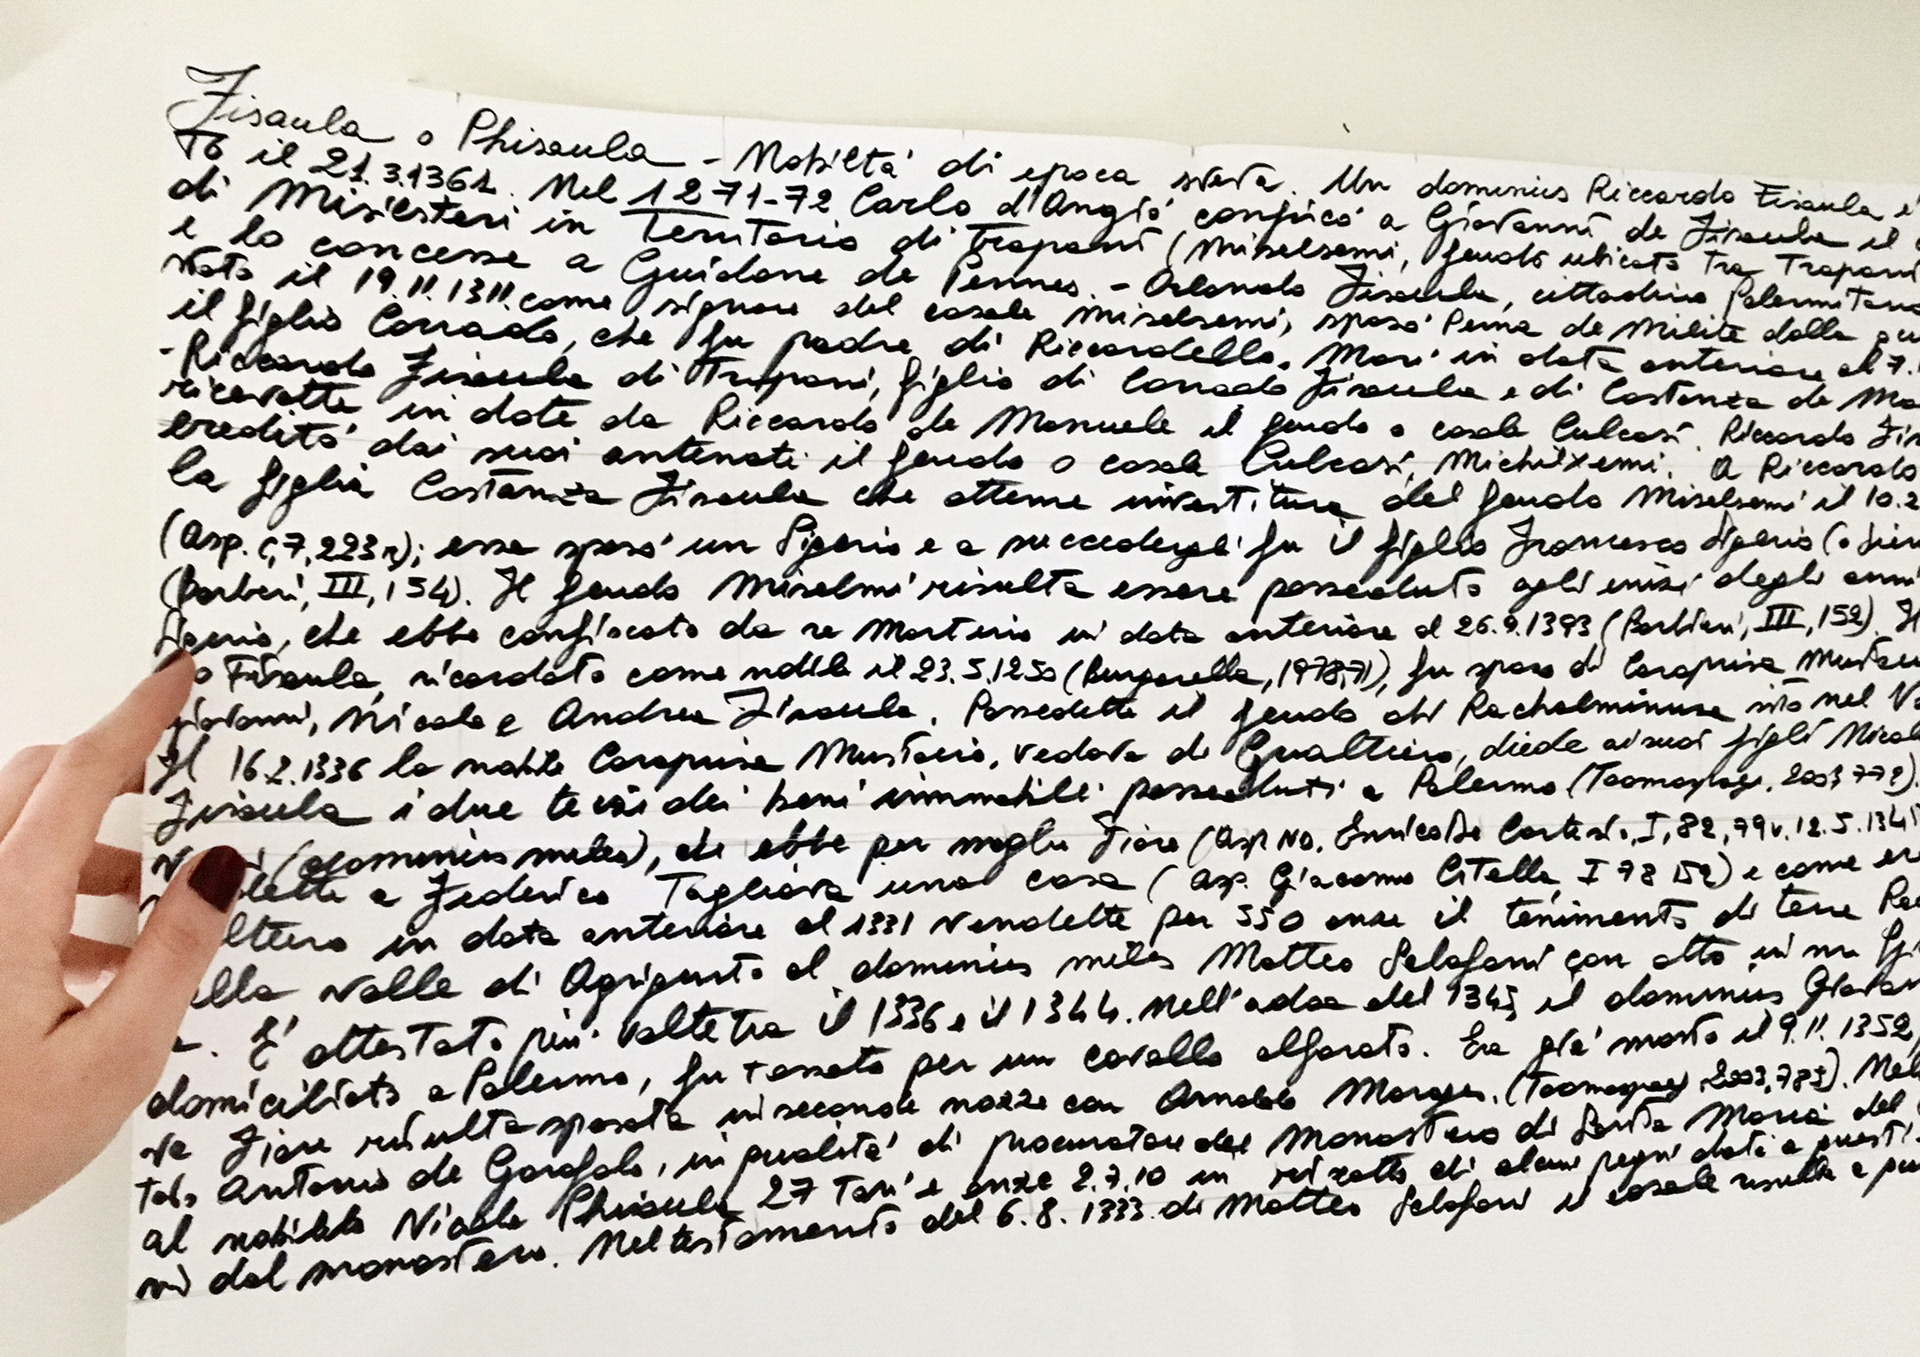 Fisaula o Phisaula - Nobiltà di epoca sveva. Un dominus Riccardo Fisaula è
to il 21.3.1361. Nel 1271-72 Carlo d'Angiò confiscò a Giovanni de Fisaula il
di Misilsteri in Territorio di Trapani (Miselsemi, feudo ubicato tra Trapani
e lo concesse a Guidone de Pennes. - Orlando Fisaula, cittadino palermitano
vato il 19.11.1311 come signore del casale Miselsemi, sposò Perna de Milite dalla
il figlio Corrado, che fu padre di Riccardello. Morì in data anteriore al 7.
- Riccardo Fisaula di Trapani, figlio di Corrado Fisaula e di Costanza de
ricevette in dote da Riccardo de Manuele il feudo o casale Culcasi. Riccardo
ereditò dai suoi antenati il feudo o casale Culcasi, Michelxemi. A Riccardo
la figlia Costanza Fisaula che ottenne investitura del feudo Miselsemi il 10.2
(Asp. c, 7, 223r); essa sposò un Sigerio e a succedergli fu il figlio Francesco Sigerio (o
(Barberi, III, 154). Il feudo Miselmi risulta essere posseduto agli inizi degli anni
Sigerio, che ebbe confiscato da re Martino in data anteriore al 26.9.1393 (Barbieri, III, 152). Il
o Fisaula, ricordato come nobile il 23.5.1250 (Burgarella, 1978, 71), fu sposo di Caraprisa
Giovanni, Nicola e Andrea Fisaula. Possedette il feudo di Rachalminusa sito nel
Il 16.2.1336 la nobile Caraprisa Mustacio, vedova di Gualtiero, diede ai suoi figli
Fisaula i due terzi dei beni immobili posseduti a Palermo (2003, 772).
(dominus miles), che ebbe per moglie Fiore (Asp No. Enrico De Cortisio, I, 82, 79v, 12.5.1345
a Federico Tagliavia una casa (Asp. Giacomo Citella, I 78 152) e come
ltiero in data anteriore al 1331 vendette per 550 onze il tenimento di terre
ella valle di Agrigento al dominus miles Matteo Sclafani con atto in
È attestato più volte tra il 1336 e il 1344. Nell'adoa del 1345 il dominus
domiciliato a Palermo, fu tassato per un cavallo alforato. Era già morto il 9.11.1352,
va Fiore risulta sposata in seconde nozze con Arnaldo (2003, 783).
Antonio de Garofalo, in qualità di procuratore del Monastero di Santa Maria del
al nobile Nicola Phisaula 27 Tarì e onze 2.7.10 in riscatto di alcuni pegni dati a questi
ni dal monastero. Nel testamento del 6.8.1333 di Matteo Sclafani il casale risulta